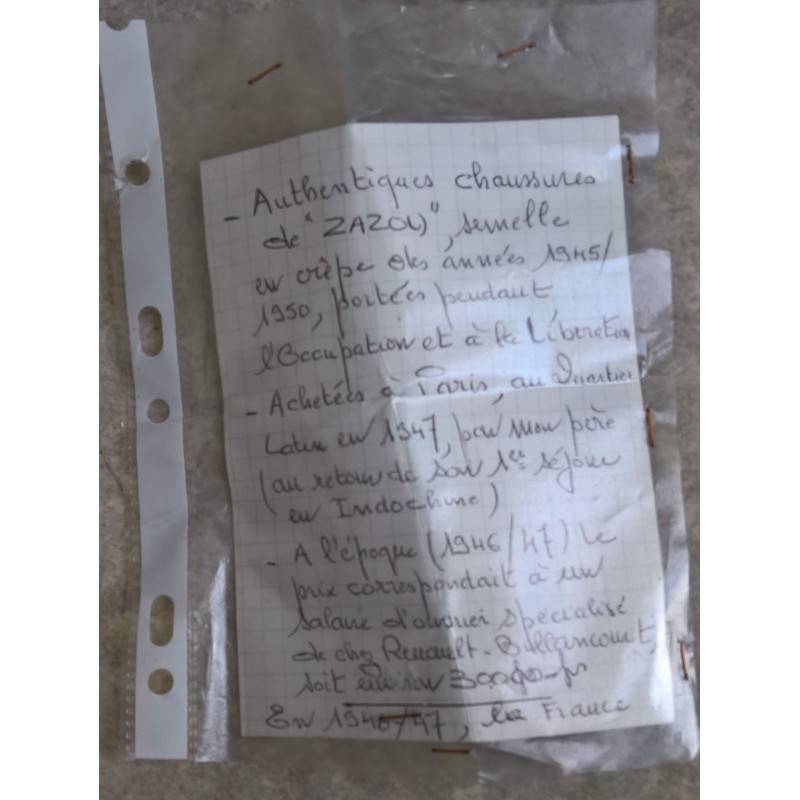 - Authentiques chaussures
de "ZAZOU", semelle
en crêpe des années 1945/
1950, portées pendant
l'Occupation et à la Libération
- Achetées à Paris, au Quartier
Latin en 1947, par mon père
(au retour de son 1er séjour
en Indochine)
- A l'époque (1946/47) le
prix correspondait à un
salaire d'ouvrier spécialisé
de chez Renault-Billancourt,
soit environ
En 1946/47, la France